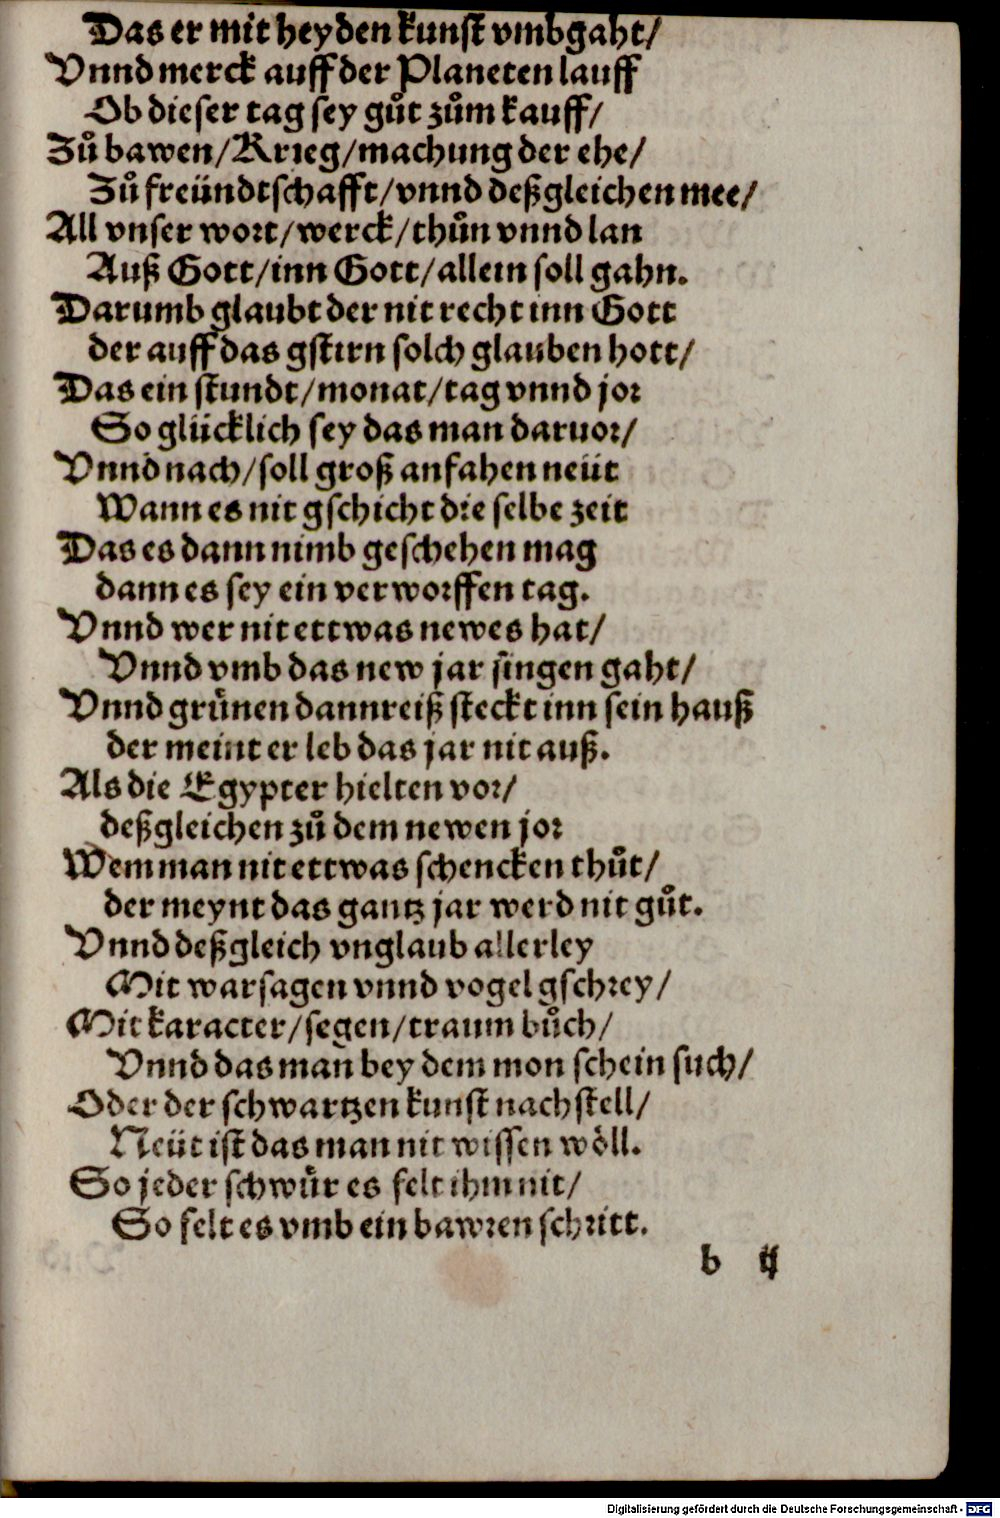 Das er mit heyden kunst vmbgaht/
Vnnd merck auff der Planeten lauff
Ob dieser tag sey gůt zům kauff/
Zů bawen/Krieg/machung der ehe/
Zů freündtschafft/vnnd deßgleichen mee/
All vnser wort/werck/thůn vnnd lan
Auß Gott/inn Gott/allein soll gahn.
Darumb glaubt der nit recht inn Gott
der auff das gstirn solch glauben hott/
Das ein stundt/monat/tag vnnd jor
So glücklich sey das man daruor/
Vnnd nach/soll groß anfahen neüt
Wann es nit gschicht die selbe zeit
Das es dann nimb geschehen mag
dann es sey ein verworffen tag.
Vnnd wer nit ettwas newes hat/
Vnnd vmb das new jar singen gaht/
Vnnd grünen dannreiß steckt inn sein hauß
der meint er leb das jar nit auß.
Als die Egypter hielten vor/
deßgleichen zů dem newen jor
Wem man nit ettwas schencken thůt/
der meynt das gantz jar werd nit gůt.
Vnnd deßgleich vnglaub allerley
Mit warsagen vnnd vogel gschrey/
Mit karacter/segen/traum bůch/
Vnnd das man bey dem mon schein such/
Oder der schwartzen kunst nachstell/
Neüt ist das man nit wissen wöll.
So jeder schwür es felt ihm nit/
So felt es vmb ein bawren schritt.
b ij
Digitalisierung gefördert durch die Deutsche Forschungsgemeinschaft - DFG